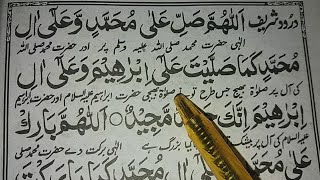 درود شریف اَللّٰهُمَّ صَلِّ عَلٰى مُحَمَّدٍ وَّعَلٰٓى اٰلِ
الٰہی حضرت محمد صلی اللہ علیہ وسلم پر اور حضرت محمد صلی اللہ
مُحَمَّدٍ كَمَا صَلَّيْتَ عَلٰٓى اِبْرٰهِيْمَ وَعَلٰٓى اٰلِ
کی آل پر صلوٰۃ بھیج جس طرح تو نے صلوٰۃ بھیجی حضرت ابراہیم علیہ السلام اور حضرت ابراہیم
اِبْرٰهِيْمَ اِنَّكَ حَمِيْدٌ مَّجِيْدٌ ○ اَللّٰهُمَّ بَارِكْ
علیہ السلام کی آل پر بیشک بزرگ ہے الٰہی برکت دے حضرت محمد صلی
عَلٰى مُحَمَّدٍ كَمَا